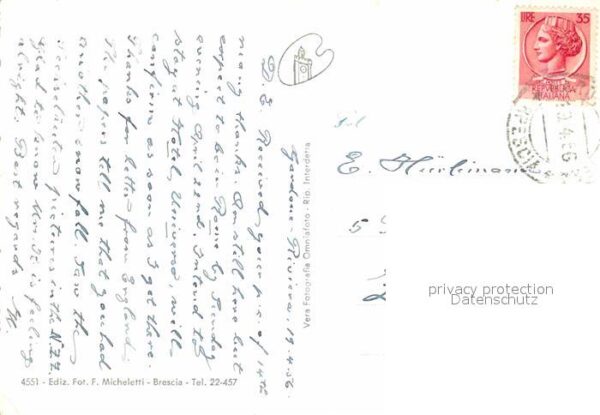 Gardone-Riviera, 19.4.56.
D. E. Received your p.c. of 14th
many thanks. Am still here but
expect to be in Rome by Sunday
evening April 22nd. Intend to
stay at Hotel Universo, will
confirm as soon as I get there.
Thanks for letter from England.
The papers tell me that you had
another snowfall. Saw the
pictures in the N.Z.Z.
Glad to know is feeling
alright. Best regards
4551 - Ediz. Fot. F. Micheletti - Brescia - Tel. 22-457
Vera Fotografia Omniafoto - Rip. Interdetta
LIRE 35
REPVBBLICA
ITALIANA
BRESCIA
E. Hürlimann
5
privacy protection
Datenschutz